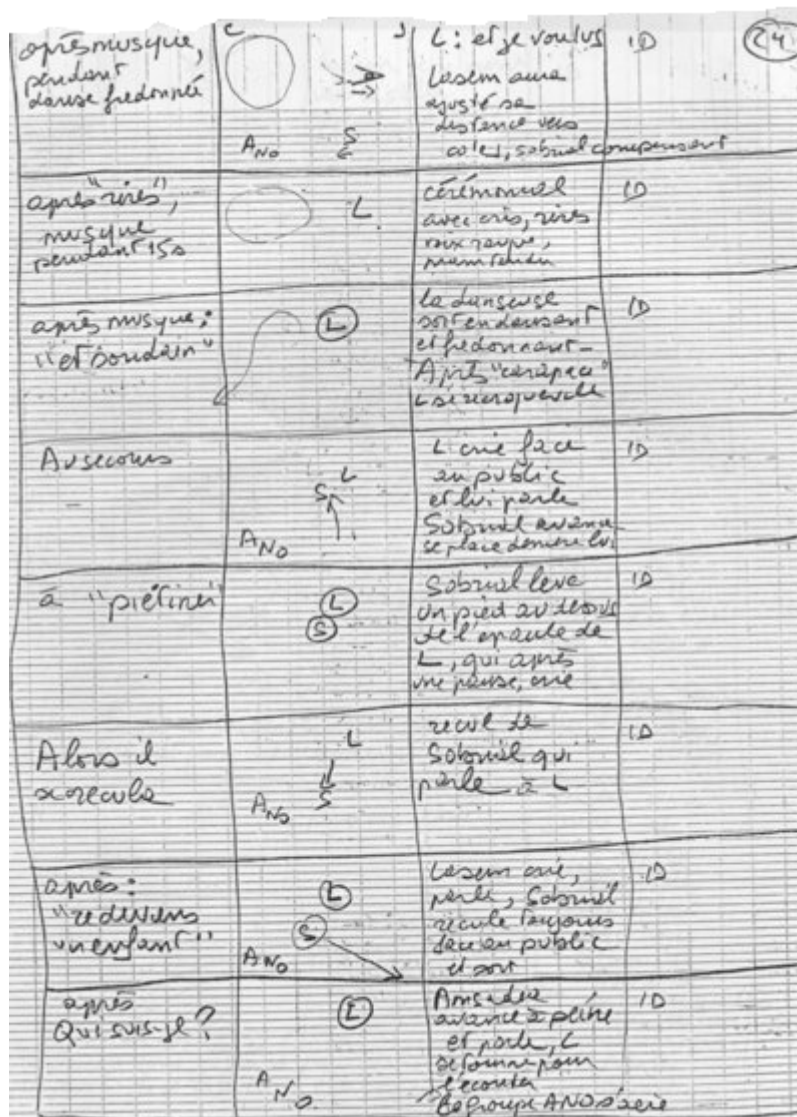 24
après musique,
pendant
danse fredonnée
C J
A NO S
L : et je voulus
Lasem aura
ajusté sa
distance vers
côté J, Sobriel compensant
ID
après "rires",
musique
pendant 15s
L
cérémoniel
avec cris, rires
voix rauque,
main tendue
ID
après musique :
"et soudain"
L
la danseuse
sort en dansant
et fredonnant -
Après "carapace"
L se recroqueville
ID
Au secours
L
S
A NO
L crie face
au public
et lui parle
Sobriel avance
se place derrière lui
ID
à "piétiner"
L
S
Sobriel lève
un pied au dessus
de l'épaule de
L, qui après
une pause, crie
ID
Alors il
recula
L
S
A NO
recul de
Sobriel qui
parle à L
ID
après :
"redeviens
un enfant"
L
S
A NO
Lasem crie,
parle, Sobriel
recule toujours
face au public
et sort
ID
après
Qui suis-je ?
L
A NO
avance à peine
et parle, L
se tourne pour
l'écouter
Le groupe ANO
ID